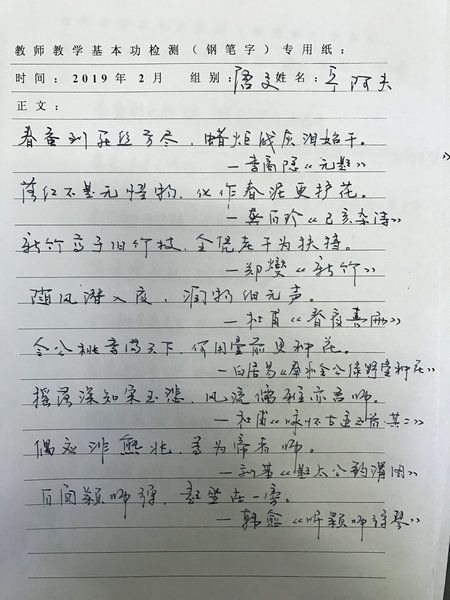 教师教学基本功检测（钢笔字）专用纸：
时间：2019年2月 组别：语文 姓名：阿夫
正文：
春蚕到死丝方尽，蜡炬成灰泪始干。
—李商隐《无题》
落红不是无情物，化作春泥更护花。
—龚自珍《己亥杂诗》
新竹高于旧竹枝，全凭老干为扶持。
—郑燮《新竹》
随风潜入夜，润物细无声。
—杜甫《春夜喜雨》
令公桃李满天下，何用堂前更种花。
—白居易《奉和令公绿野堂种花》
摇落深知宋玉悲，风流儒雅亦吾师。
—杜甫《咏怀古迹五首其二》
偶应非熊兆，尊为帝者师。
—刘基《题太公钓渭图》
自闻颖师弹，起坐在一旁。
—韩愈《听颖师弹琴》